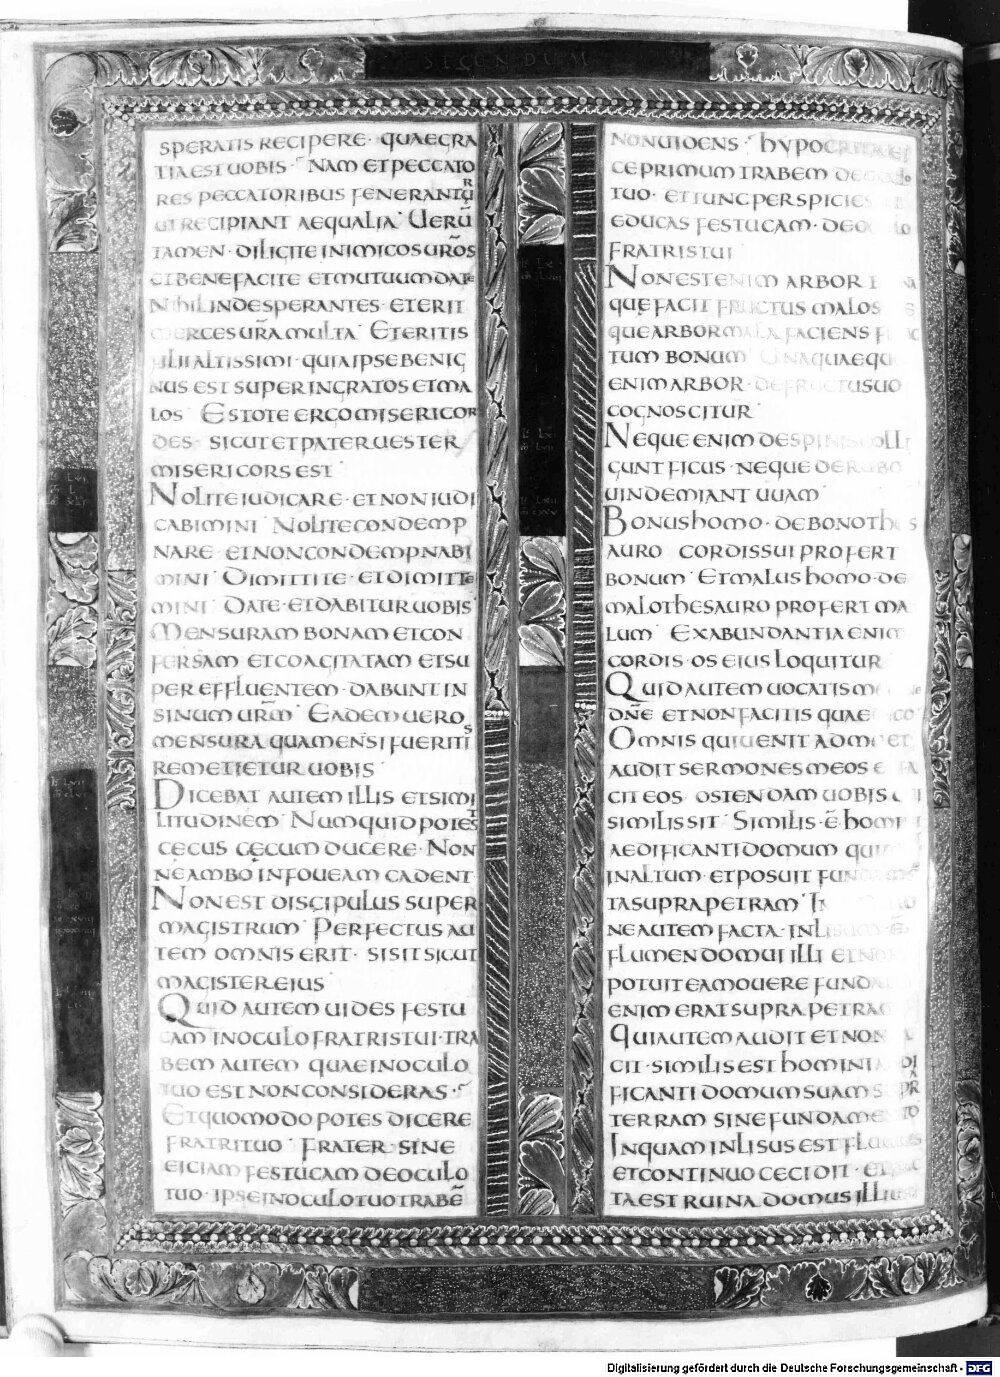 SECUNDUM
SPERATIS RECIPERE · QUAE GRA
TIA EST UOBIS · NAM ET PECCATO
RES PECCATORIBUS FENERANTUR
UT RECIPIANT AEQUALIA · UERŨ
TAMEN · DILIGITE INIMICOS UR̃OS
ET BENEFACITE ET MUTUUM DATE
NIHIL INDE SPERANTES · ET ERIT
MERCES UR̃A MULTA · ET ERITIS
FILII ALTISSIMI · QUIA IPSE BENIG
NUS EST SUPER INGRATOS ET MA
LOS · ESTOTE ERGO MISERICOR
DES · SICUT ET PATER UESTER
MISERICORS EST ·
NOLITE IUDICARE · ET NON IUDI
CABIMINI · NOLITE CONDEMP
NARE · ET NON CONDEMPNABI
MINI · DIMITTITE · ET DIMITTE
MINI · DATE · ET DABITUR UOBIS ·
MENSURAM BONAM ET CON
FERSAM ET COAGITATAM ET SU
PER EFFLUENTEM · DABUNT IN
SINUM UR̃M · EADEM UERO
MENSURA QUA MENSI FUERITIS
REMETIETUR UOBIS ·
DICEBAT AUTEM ILLIS ET SIMI
LITUDINEM · NUMQUID POTEST
CECUS CĘCUM DUCERE · NON
NE AMBO IN FOUEAM CADENT ·
NON EST DISCIPULUS SUPER
MAGISTRUM · PERFECTUS AU
TEM OMNIS ERIT · SI SIT SICUT
MAGISTER EIUS
QUID AUTEM UIDES FESTU
CAM IN OCULO FRATRIS TUI · TRA
BEM AUTEM QUAE IN OCULO
TUO EST NON CONSIDERAS ·
ET QUOMODO POTES DICERE
FRATRI TUO · FRATER · SINE
EICIAM FESTUCAM DE OCULO
TUO · IPSE IN OCULO TUO TRABẼ
NON UIDENS · HYPOCRITA EI
CE PRIMUM TRABEM DE OCULO
TUO · ET TUNC PERSPICIES
EDUCAS FESTUCAM · DE OCULO
FRATRIS TUI
NON EST ENIM ARBOR
QUĘ FACIT FRUCTUS MALOS
QUE ARBOR MALA FACIENS FRUC
TUM BONUM · UNAQUAEQUE
ENIM ARBOR · DE FRUCTU SUO
COGNOSCITUR ·
NEQUE ENIM DE SPINIS COLLI
GUNT FICUS · NEQUE DE RUBO
UINDEMIANT UUAM ·
BONUS HOMO · DE BONO THES
AURO CORDIS SUI PROFERT
BONUM · ET MALUS HOMO · DE
MALO THESAURO PROFERT MA
LUM · EX ABUNDANTIA ENIM
CORDIS · OS EIUS LOQUITUR ·
QUID AUTEM UOCATIS ME
DÑE ET NON FACITIS QUAE DICO
OMNIS QUI UENIT AD ME ET
AUDIT SERMONES MEOS ET FA
CIT EOS OSTENDAM UOBIS CUI
SIMILIS SIT · SIMILIS · Ẽ HOMINI
AEDIFICANTI DOMUM QUI
IN ALTUM · ET POSUIT FUNDAMEN
TA SUPRA PETRAM · IN
NE AUTEM FACTA · INLISUM Ẽ
FLUMEN DOMUI ILLI ET NON
POTUIT EAM OUERE FUNDATA
ENIM ERAT SUPRA PETRAM
QUI AUTEM AUDIT ET NON
CIT · SIMILIS EST HOMINI AEDI
FICANTI DOMUM SUAM SUPRA
TERRAM SINE FUNDAMENTO
IN QUAM INLISUS EST FLUUIUS
ET CONTINUO CECIDIT · ET FAC
TA EST RUINA DOMUS ILLIUS
Digitalisierung gefördert durch die Deutsche Forschungsgemeinschaft - DFG